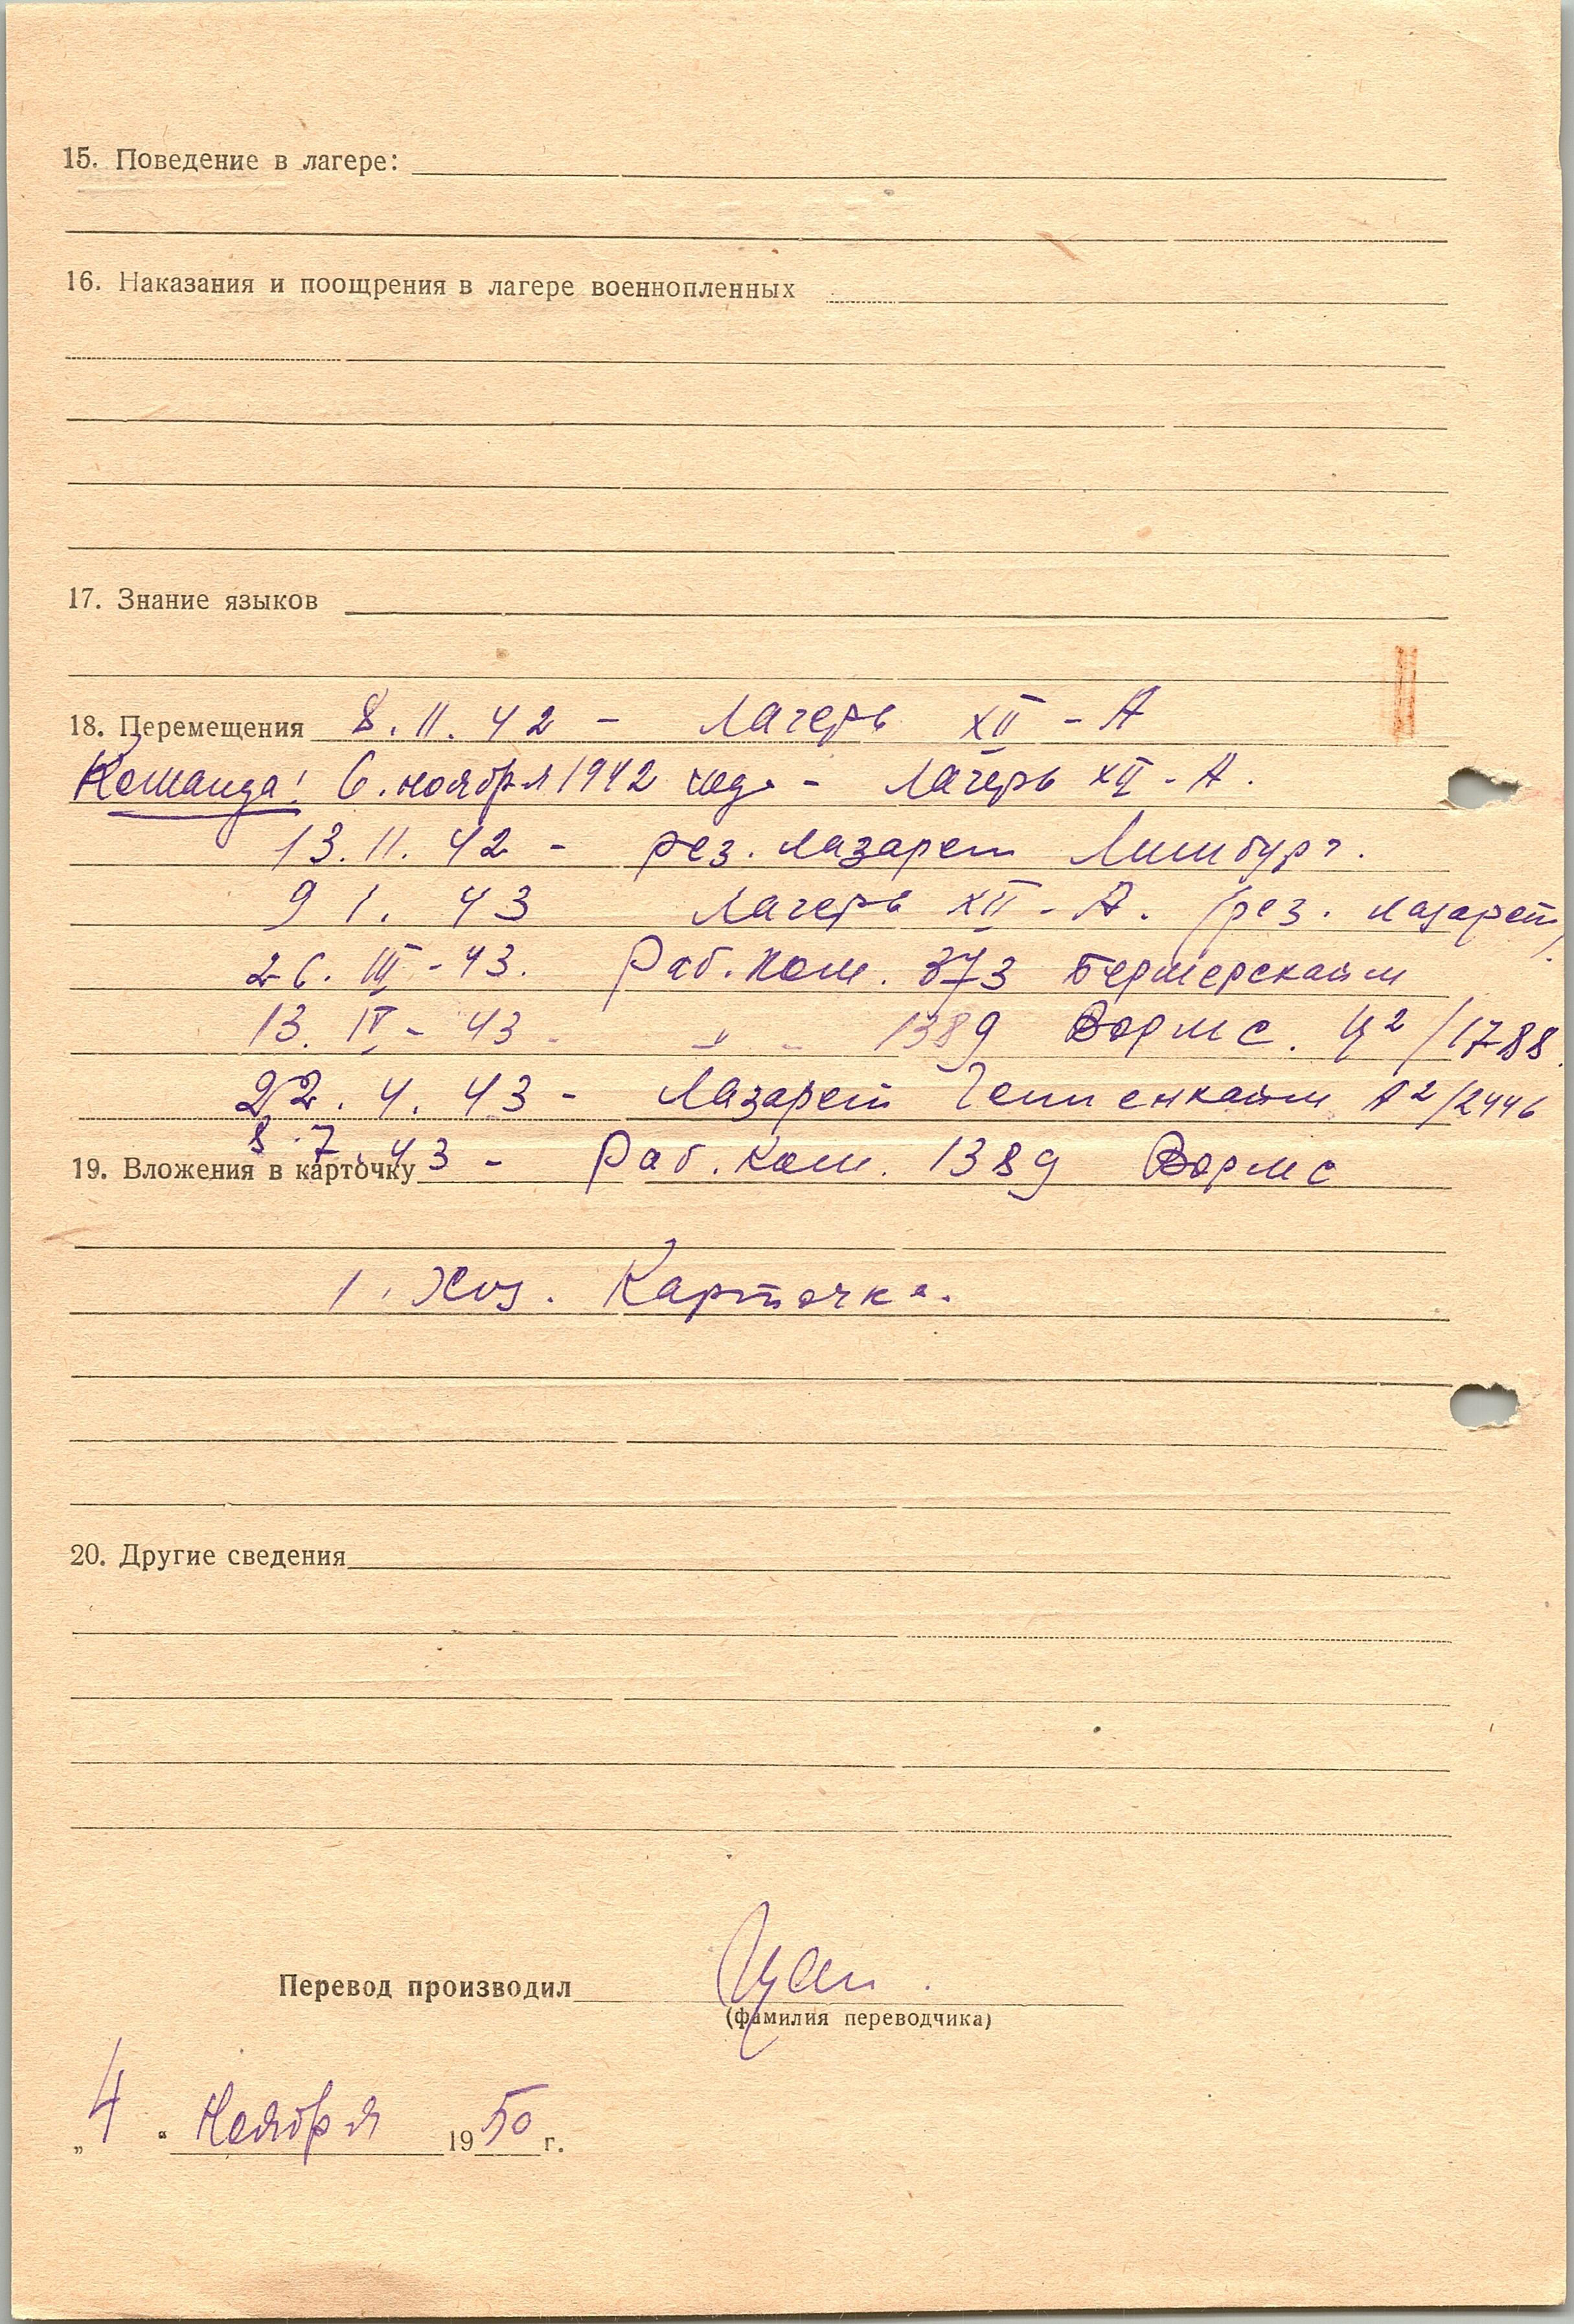 15. Поведение в лагере:
16. Наказания и поощрения в лагере военнопленных
17. Знание языков
18. Перемещения 8.11.42 - Лагерь XII - А
Команда: 6. ноября 1942 года - Лагерь XII - А.
13.11.42 - рез. лазарет Лимбург.
9 1. 43 Лагерь XII - А. (рез. лазарет)
26. III - 43. Раб. ком. 373 Бермерсхайм
13. IV - 43 - " - 1389 Вормс. Ц²/1788.
22. 4. 43 - Лазарет Геппенхайм А²/2446
8.7.43 - Раб. Ком. 1389 Вормс
19. Вложения в карточку
1. Хоз. Карточка.
20. Другие сведения
Перевод производил
(фамилия переводчика)
„4“ Ноября 1950 г.